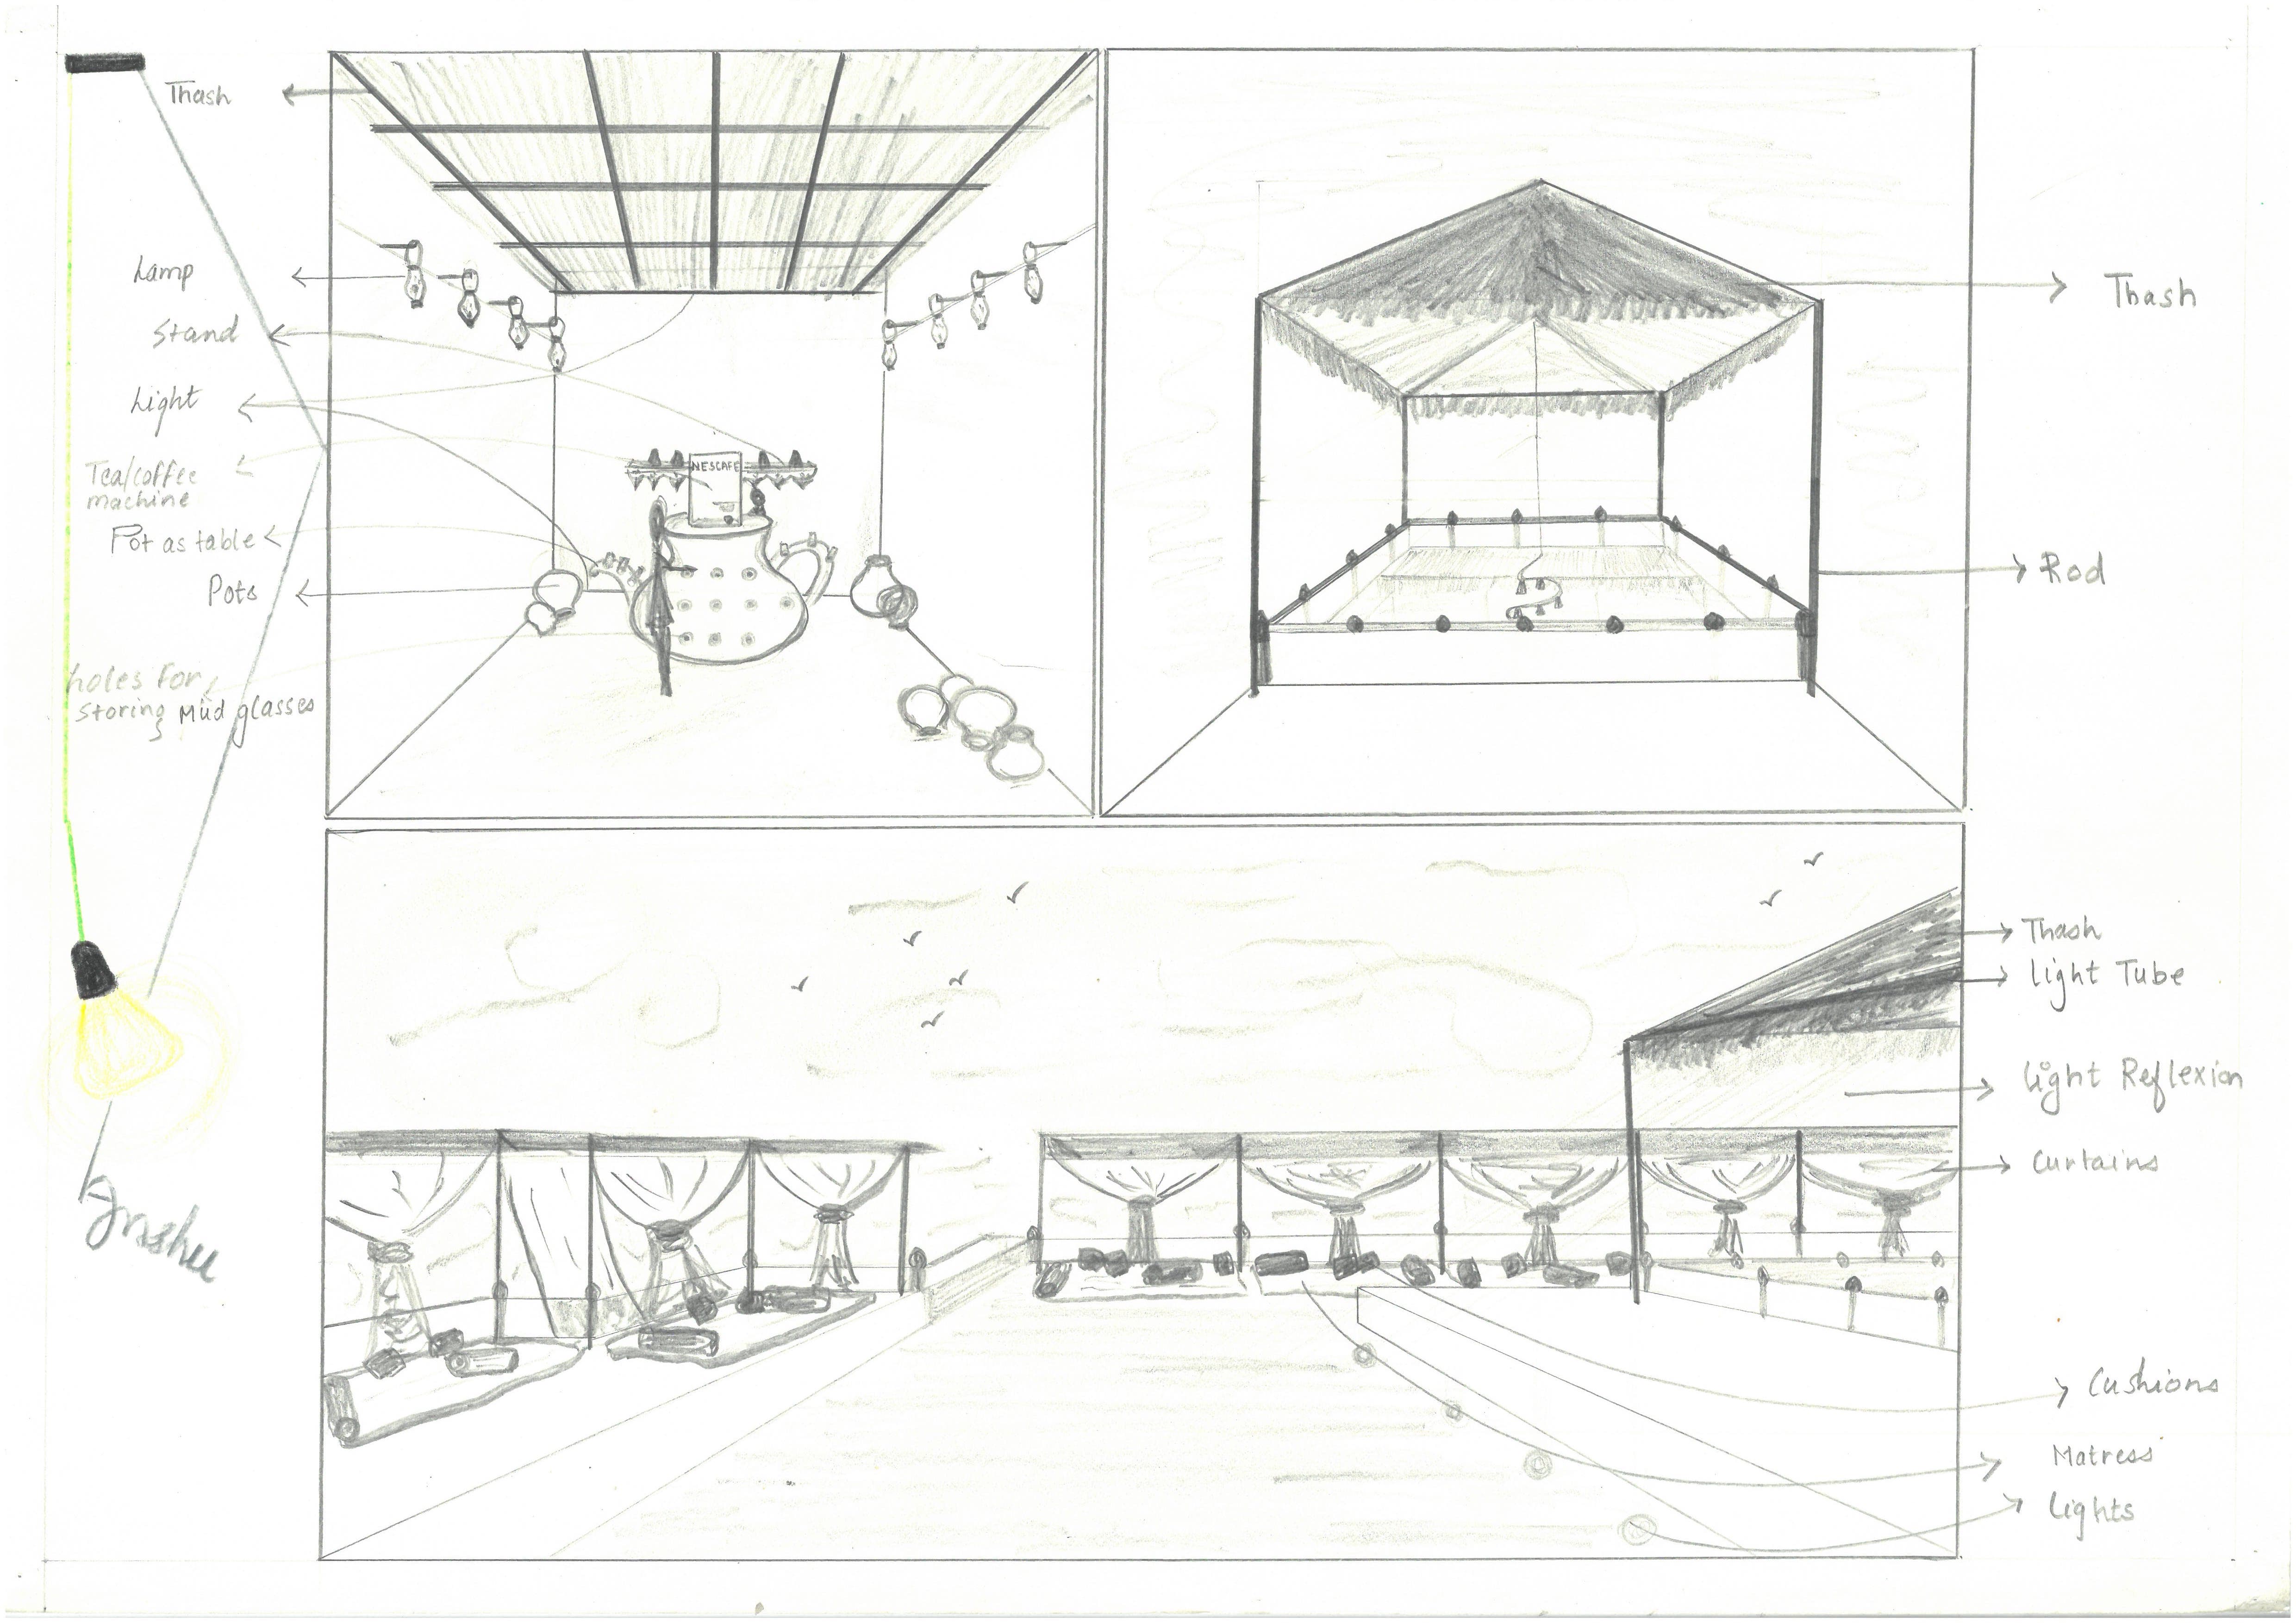 Thash
Lamp
Stand
Light
Tea/coffee
machine
Pot as table
Pots
holes for
storing Mud glasses
NESCAFE
Thash
Rod
Thash
light Tube
Light Reflexion
Curtains
Cushions
Matress
Lights